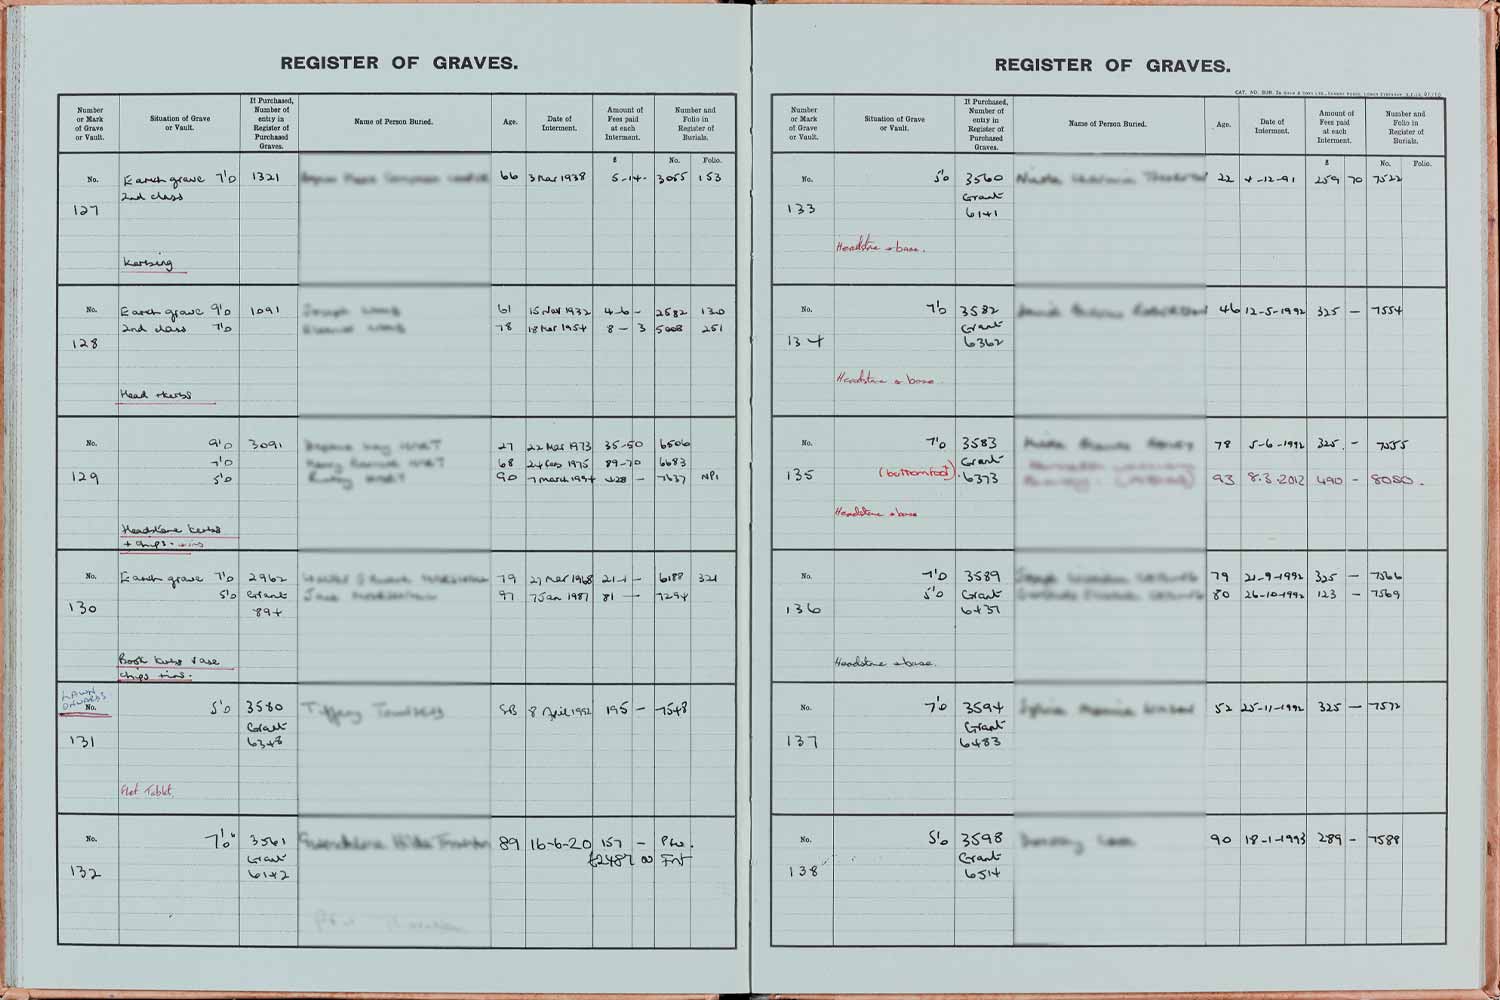 REGISTER OF GRAVES.
Number or Mark of Grave or Vault.
Situation of Grave or Vault.
If Purchased, Number of entry in Register of Purchased Graves.
Name of Person Buried.
Age.
Date of Interment.
Amount of Fees paid at each Interment.
Number and Folio in Register of Burials.
£ No. Folio.
No. Earth grave 7'0 1321 66 3 Mar 1938 5-14- 3055 153
2nd class
127
Kerbing
No. Earth grave 9'0 1091 61 15 Nov 1932 4-6- 2582 130
2nd class 7'0 78 18 Mar 1954 8 - 3 5008 251
128
Head + kerbs
No. 9'0 3091 27 22 Mar 1973 35-50 6506
7'0 68 24 Feb 1975 89-70 6683
129 5'0 90 7 March 1994 428 - 7637 NP1
Headstone kerbs
+ chips
No. Earth grave 7'0 2962 79 27 Mar 1968 21-1- 6188 321
5'0 Grant 97 7 Jan 1987 81 - 7294
130 894
Book kerbs vase
chips
LAWN
ONWARDS
No. 5'0 3580 Tiffany SB 8 April 1992 195 - 7548
Grant
131 6348
Flat Tablet.
No. 7'0 3561 89 16-6-20 157 -
Grant £2487 00
132 6142
REGISTER OF GRAVES.
Number or Mark of Grave or Vault.
Situation of Grave or Vault.
If Purchased, Number of entry in Register of Purchased Graves.
Name of Person Buried.
Age.
Date of Interment.
Amount of Fees paid at each Interment.
Number and Folio in Register of Burials.
£ No. Folio.
No. 5'0 3560 22 4-12-91 259 70 7522
Grant
133 6141
Headstone + base.
No. 7'0 3582 46 12-5-1992 325 - 7554
Grant
134 6362
Headstone + base
No. 7'0 3583 78 5-6-1992 325. - 7555
Grant
135 (bottom foot). 6373 93 8.3.2012 490 - 8080.
Headstone + base
No. 7'0 3589 79 21-9-1992 325 - 7566
5'0 Grant 80 26-10-1992 123 - 7569
136 6437
Headstone + base.
No. 7'0 3594 52 25-11-1992 325 - 7572
Grant
137 6483
No. 5'0 3598 90 18-1-1993 289 - 7588
Grant
138 6514